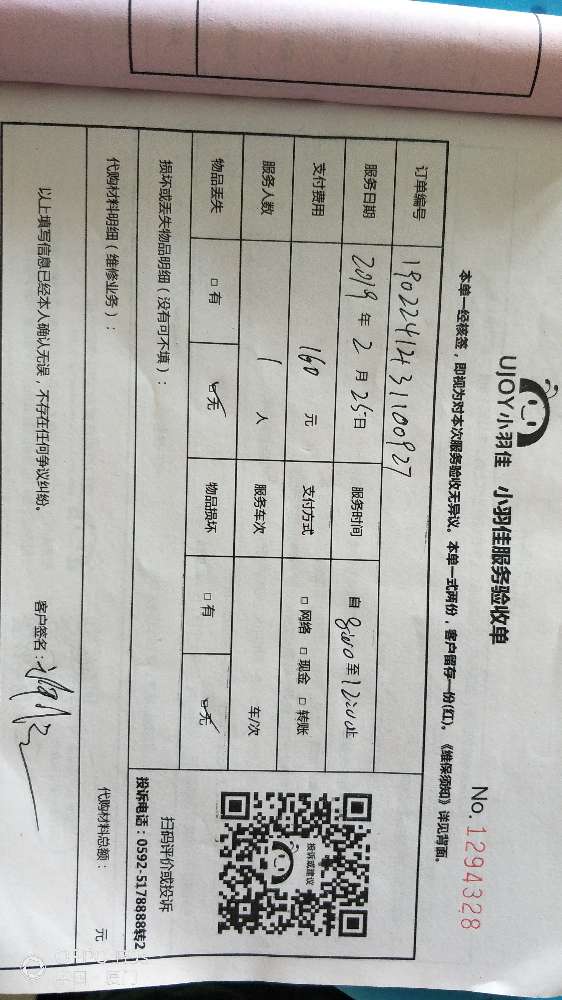 UJOY小羽佳 小羽佳服务验收单
No. 1294328
本单一经核签，即视为对本次服务验收无异议。本单一式两份，客户留存一份(红)。《维保须知》详见背面。
订单编号 19022412431100927
服务日期 2019 年 2 月 25 日 服务时间 自 8:00 至 12:00 止
支付费用 160 元 支付方式 □ 网络 □ 现金 □ 转账
服务人数 1 人 服务车次 车/次
物品丢失 □ 有 ☑ 无 物品损坏 □ 有 ☑ 无
投诉或建议
扫码评价或投诉
投诉电话：0592-5178888转2
损坏或丢失物品明细（没有可不填）：
代购材料明细（维修业务）： 代购材料总额： 元
以上填写信息已经本人确认无误，不存在任何争议纠纷。 客户签名：